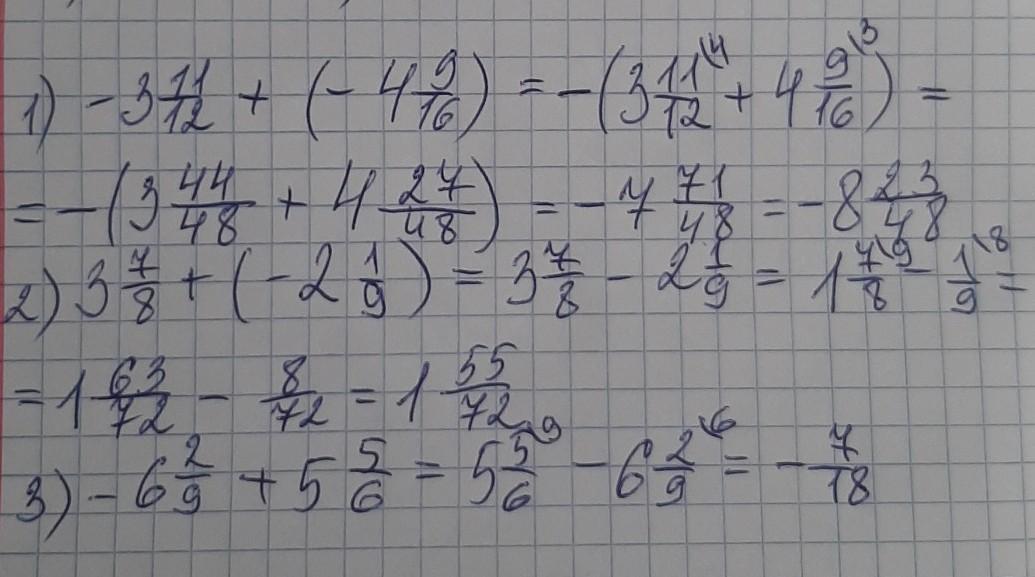 1) -3 11/12 + (-4 9/16) = -(3 11/12 \4 + 4 9/16 \3) =
= -(3 44/48 + 4 27/48) = -7 71/48 = -8 23/48
2) 3 7/8 + (-2 1/9) = 3 7/8 - 2 1/9 = 1 7/8 \9 - 1/9 \8 =
= 1 63/72 - 8/72 = 1 55/72
3) -6 2/9 + 5 5/6 = 5 5/6 \9 - 6 2/9 \6 = -7/18